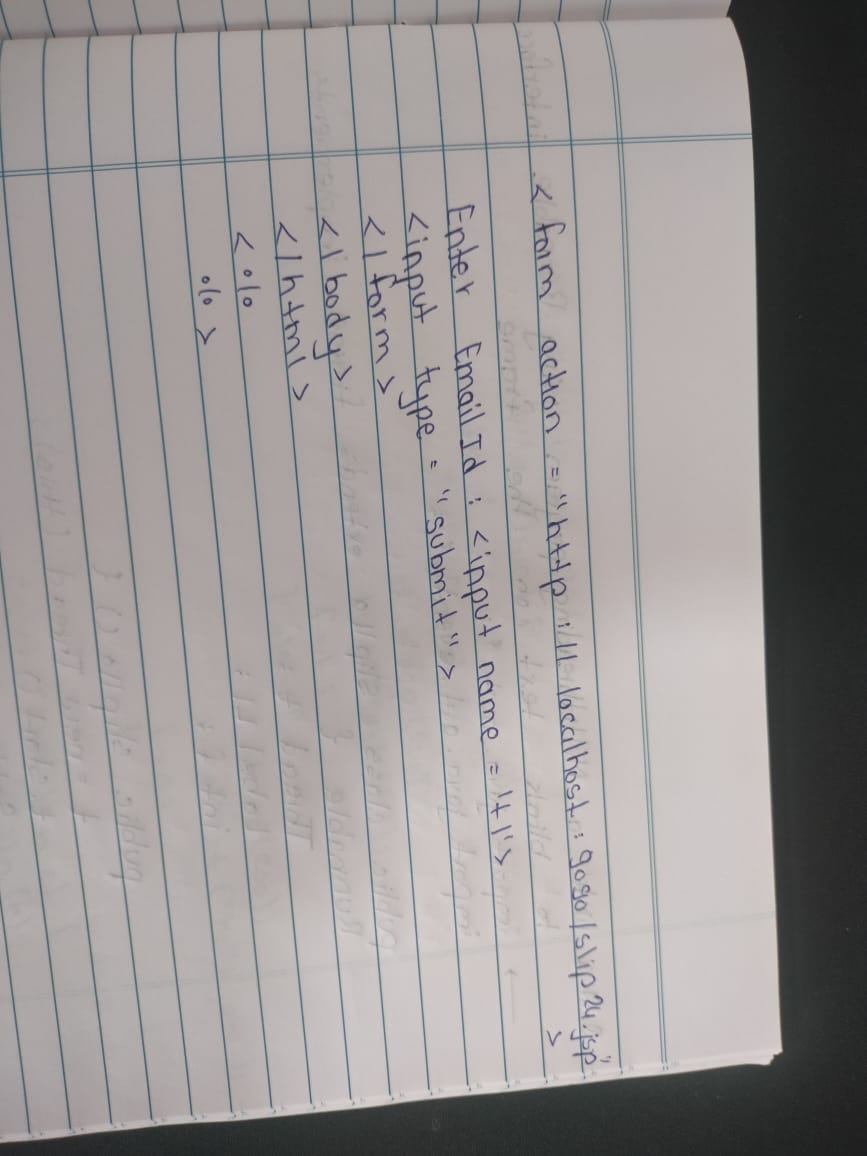 < form action = "http : // localhost : 9090 / slip24.jsp"
>
Enter Email Id : <input name = 't1'>
<input type = "submit">
</form>
</body>
</html>
<%
%>